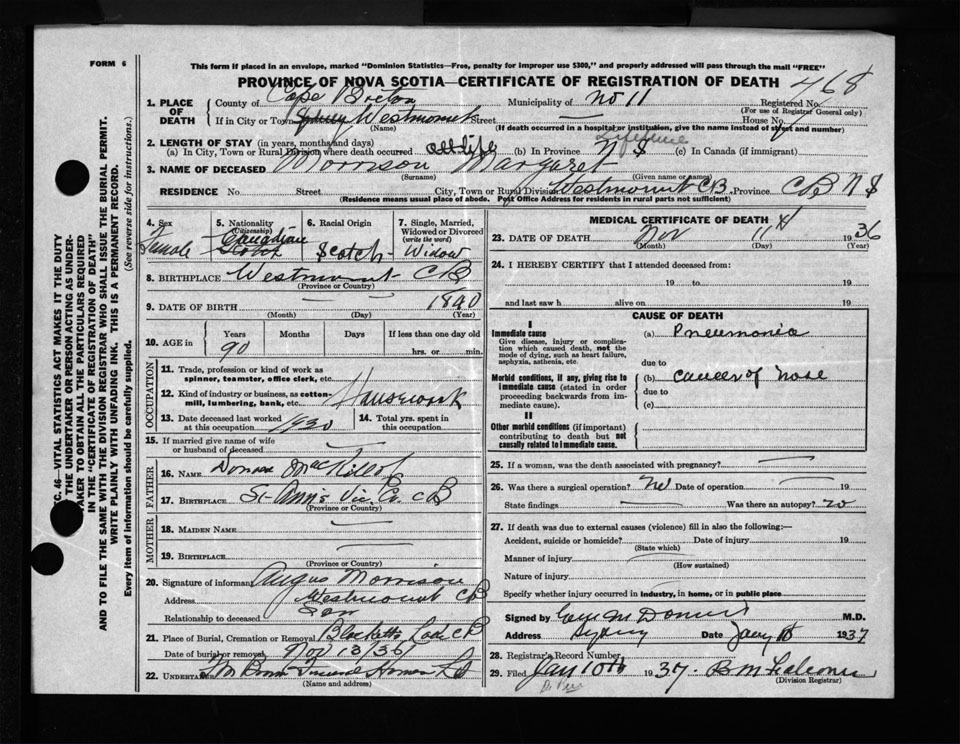 FORM 6
This form if placed in an envelope, marked "Dominion Statistics—Free, penalty for improper use $300," and properly addressed will pass through the mail "FREE"
PROVINCE OF NOVA SCOTIA—CERTIFICATE OF REGISTRATION OF DEATH 468
1. PLACE OF DEATH
County of Cape Breton Municipality of No 11 Registered No.
(For use of Registrar General only)
If in City or Town Sydney Westmount Street House No.
(Name) (If death occurred in a hospital or institution, give the name instead of street and number)
2. LENGTH OF STAY (in years, months and days) Lifetime
(a) In City, Town or Rural Division where death occurred all life (b) In Province N S (c) In Canada (if immigrant)
3. NAME OF DECEASED Morrison Margaret
(Surname) (Given name or names)
RESIDENCE No. Street City, Town or Rural Division Westmount CB Province CB N S
(Residence means usual place of abode. Post Office Address for residents in rural parts not sufficient)
4. Sex Female
5. Nationality (Citizenship) Canadian Scotch
6. Racial Origin Scotch
7. Single, Married, Widowed or Divorced (write the word) Widow
8. BIRTHPLACE Westmount CB
(Province or Country)
9. DATE OF BIRTH 1840
(Month) (Day) (Year)
10. AGE in Years Months Days If less than one day old
90 hrs. or min.
OCCUPATION
11. Trade, profession or kind of work as spinner, teamster, office clerk, etc.
12. Kind of industry or business, as cotton-mill, lumbering, bank, etc. Housework
13. Date deceased last worked at this occupation 1930
14. Total yrs. spent in this occupation
15. If married give name of wife or husband of deceased
FATHER
16. NAME MacKillop
17. BIRTHPLACE St Ann's Vic. Co. CB
(Province or Country)
MOTHER
18. MAIDEN NAME
19. BIRTHPLACE
(Province or Country)
20. Signature of informant Angus Morrison
Address Westmount CB
Relationship to deceased Son
21. Place of Burial, Cremation or Removal Blacketts Lake CB
Date of burial or removal Nov 13/36
22. UNDERTAKER Funeral Home
(Name and address)
MEDICAL CERTIFICATE OF DEATH
23. DATE OF DEATH Nov 11th 1936
(Month) (Day) (Year)
24. I HEREBY CERTIFY that I attended deceased from:
19 to 19
and last saw h alive on 19
CAUSE OF DEATH
I
Immediate cause (a) Pneumonia
Give disease, injury or complication which caused death, not the mode of dying, such as heart failure, asphyxia, asthenia, etc.
due to
Morbid conditions, if any, giving rise to immediate cause (stated in order proceeding backwards from immediate cause).
(b) Cancer of nose
due to
(c)
II
Other morbid conditions (if important) contributing to death but not causally related to immediate cause.
25. If a woman, was the death associated with pregnancy?
26. Was there a surgical operation? No Date of operation 19
State findings Was there an autopsy? no
27. If death was due to external causes (violence) fill in also the following:—
Accident, suicide or homicide? Date of injury 19
(State which)
Manner of injury
(How sustained)
Nature of injury
Specify whether injury occurred in industry, in home, or in public place
Signed by M.D.
Address Sydney Date Jany 1937
28. Registrar's Record Number
29. Filed Jan 10th 1937
(Division Registrar)
C. 46—VITAL STATISTICS ACT MAKES IT THE DUTY
THE UNDERTAKER OR PERSON ACTING AS UNDERTAKER TO OBTAIN ALL THE PARTICULARS REQUIRED
IN THE "CERTIFICATE OF REGISTRATION OF DEATH"
AND TO FILE THE SAME WITH THE DIVISION REGISTRAR WHO SHALL ISSUE THE BURIAL PERMIT.
WRITE PLAINLY WITH UNFADING INK. THIS IS A PERMANENT RECORD.
Every item of information should be carefully supplied. (See reverse side for instructions.)